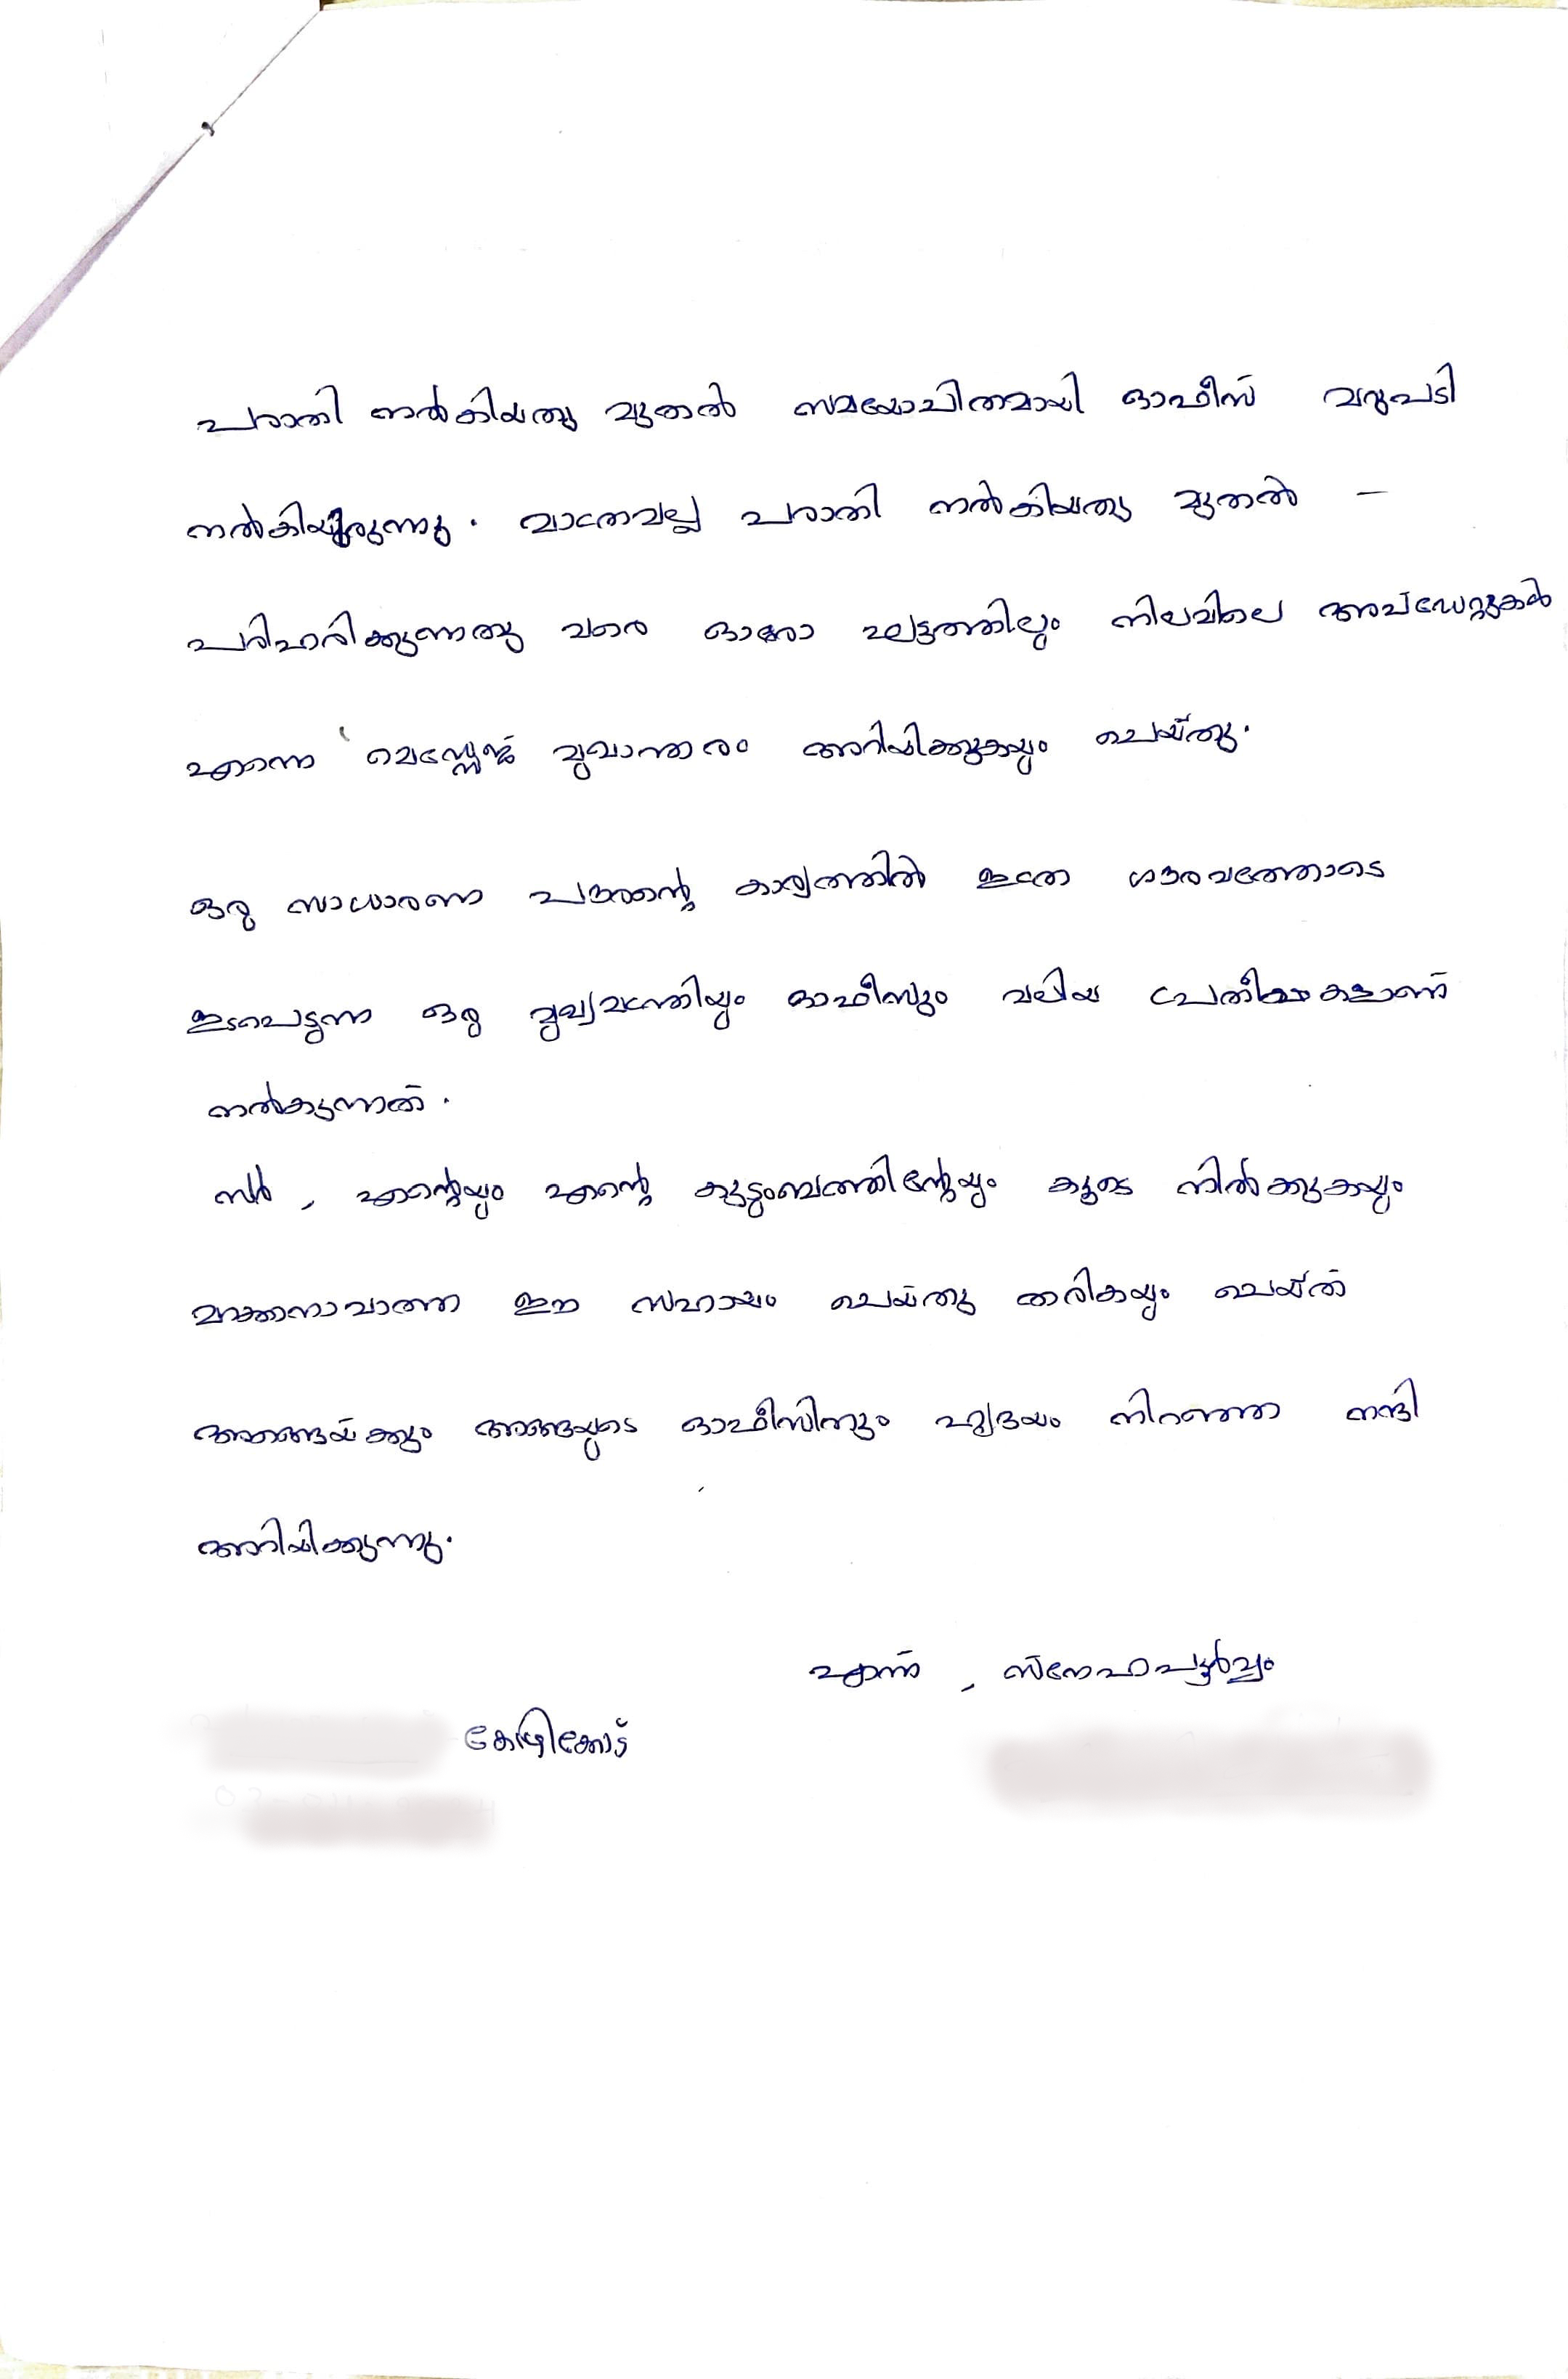 പരാതി നൽകിയതു മുതൽ സമയോചിതമായി ഓഫീസ് മറുപടി
നൽകിയിരുന്നു. മാത്രമല്ല പരാതി നൽകിയതു മുതൽ –
പരിഹരിക്കുന്നതു വരെ ഓരോ ഘട്ടത്തിലും നിലവിലെ അപ്ഡേറ്റുകൾ
എന്നെ മെസ്സേജ് മുഖാന്തരം അറിയിക്കുകയും ചെയ്തു.
ഒരു സാധാരണ പൗരന്റെ കാര്യത്തിൽ ഇത്ര ഗൗരവത്തോടെ
ഇടപെടുന്ന ഒരു മുഖ്യമന്ത്രിയും ഓഫീസും വലിയ പ്രതീക്ഷകളാണ്
നൽകുന്നത്.
സർ, എന്റെയും എന്റെ കുടുംബത്തിന്റേയും കൂടെ നിൽക്കുകയും
മറക്കാനാവാത്ത ഈ സഹായം ചെയ്തു തരികയും ചെയ്ത
അങ്ങയ്ക്കും അങ്ങയുടെ ഓഫീസിനും ഹൃദയം നിറഞ്ഞ നന്ദി
അറിയിക്കുന്നു.
എന്ന്, സ്നേഹപൂർവ്വം
കോഴിക്കോട്